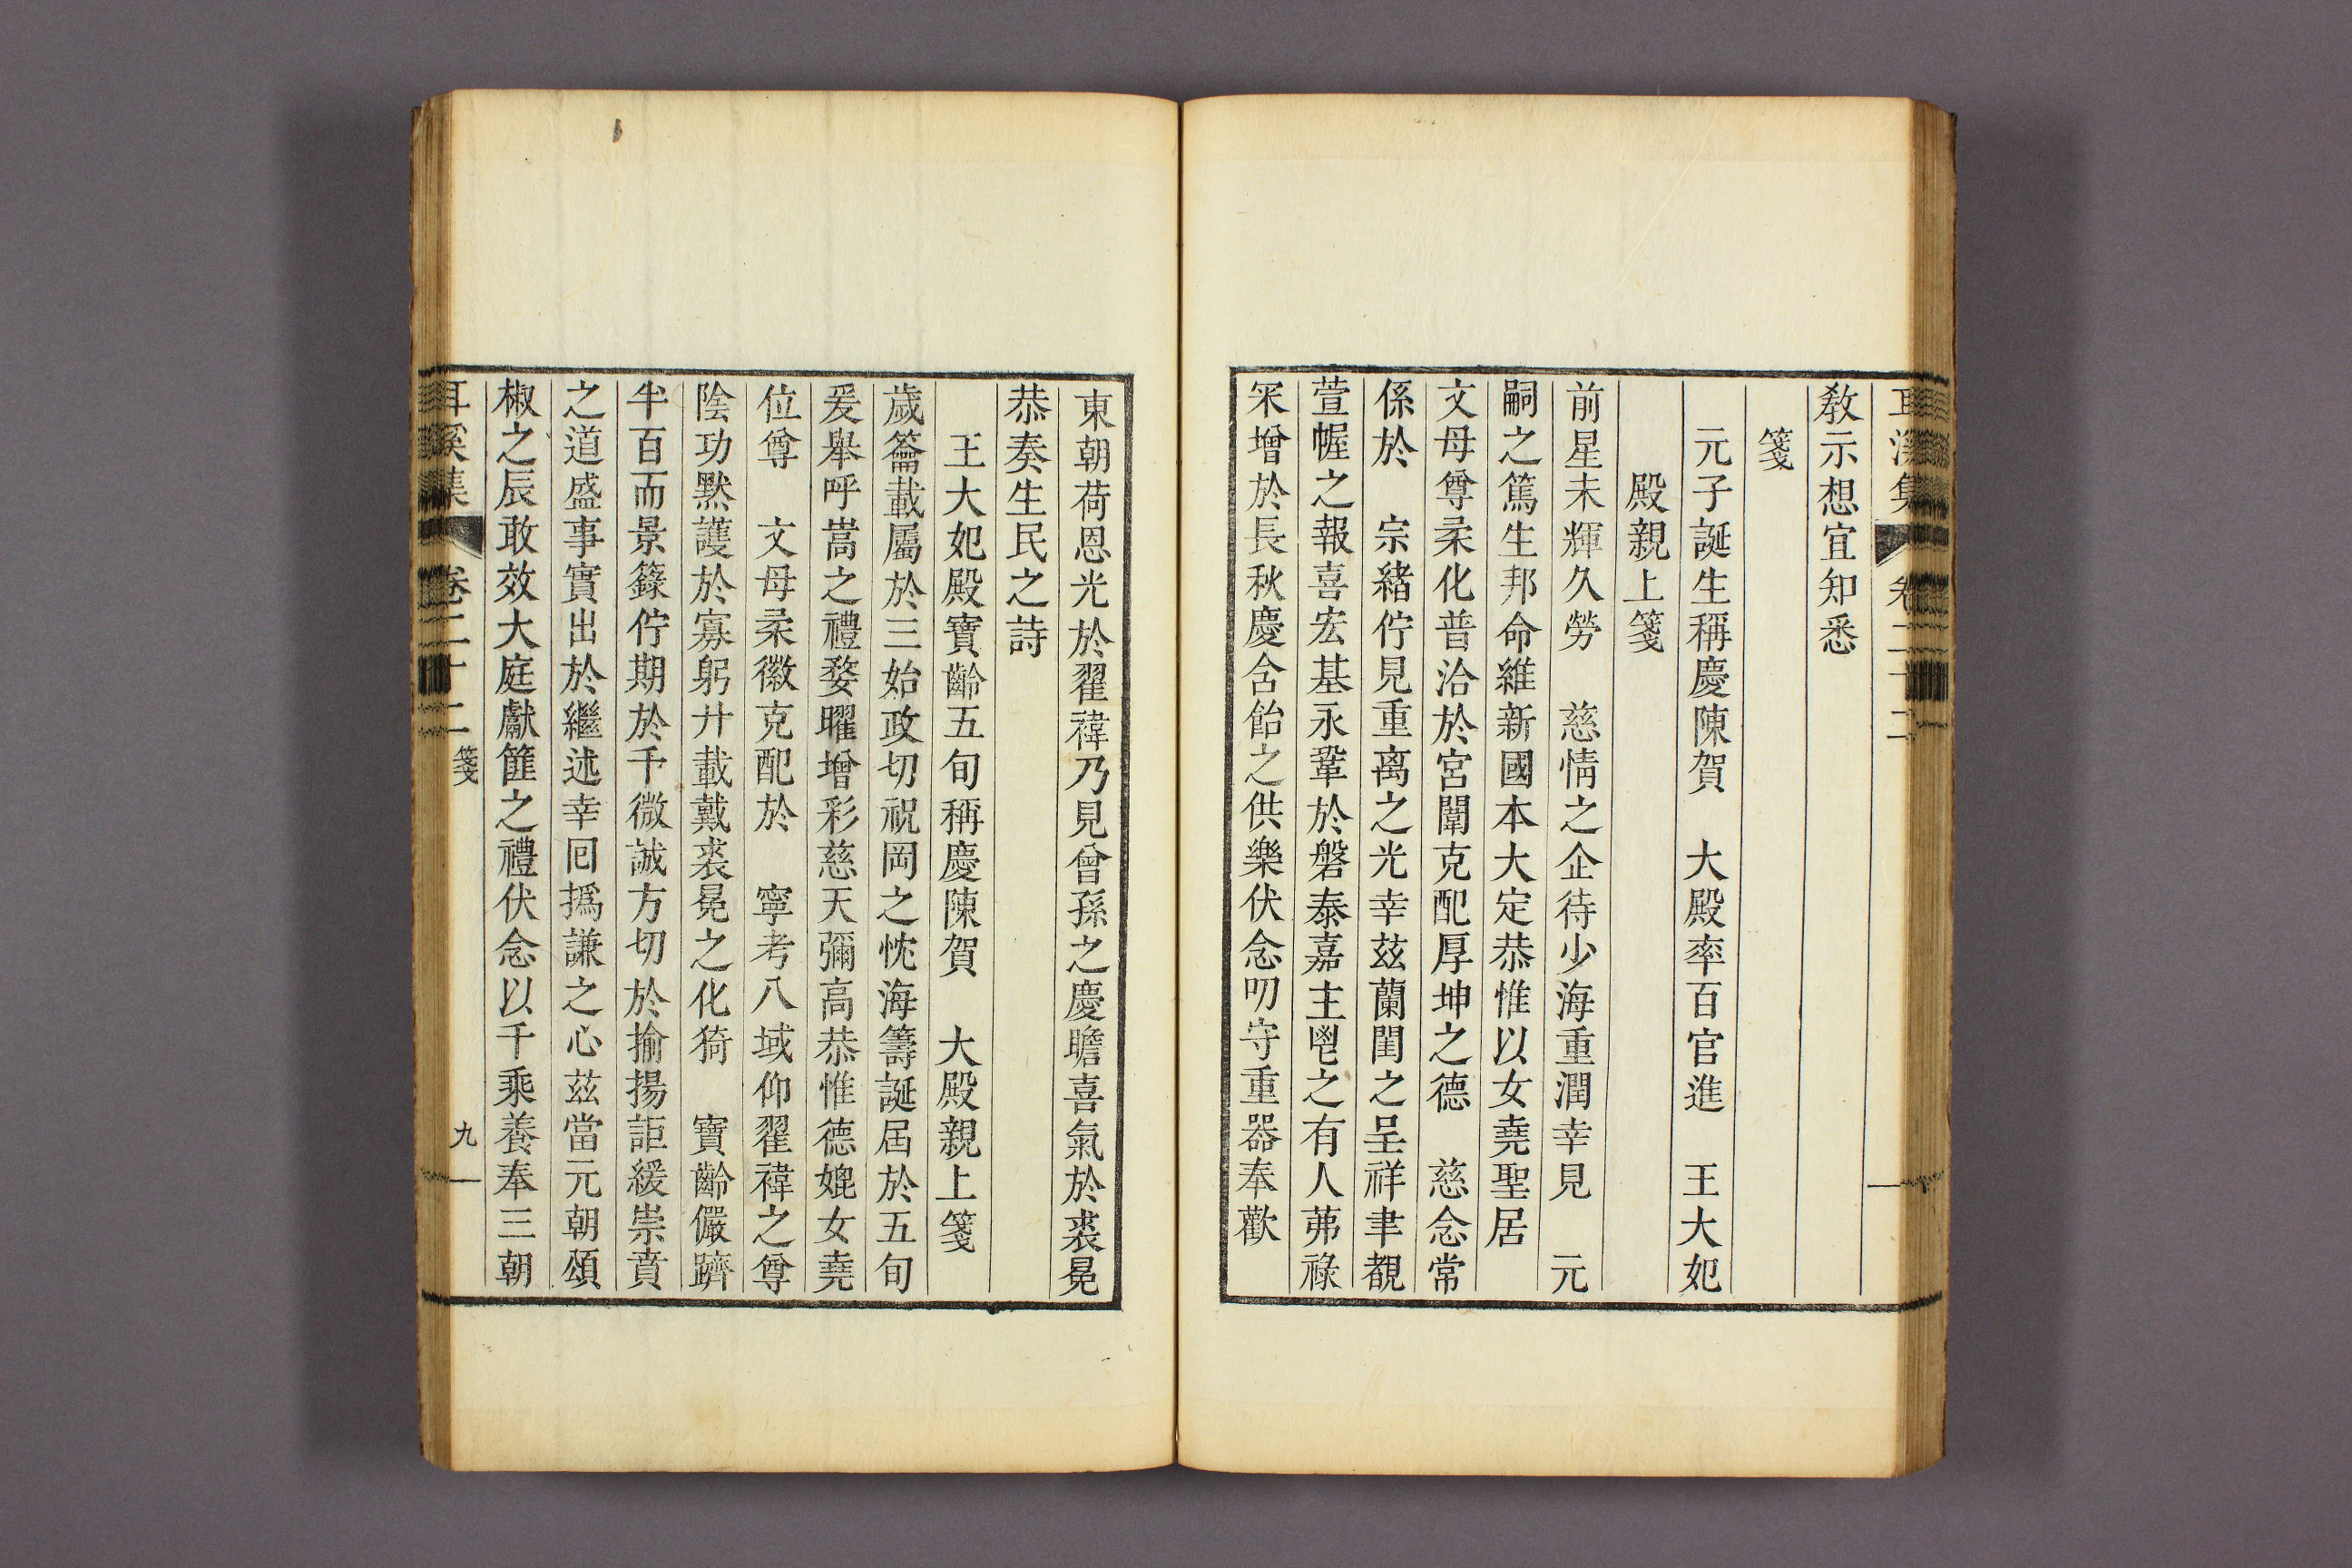 耳溪集 卷二十二
敎示想宜知悉
箋
元子誕生稱慶陳賀 大殿率百官進 王大妃
殿親上箋
前星未輝久勞 慈情之企待少海重潤幸見 元
嗣之篤生邦命維新國本大定恭惟以女堯聖居
文母尊柔化普洽於宮闈克配厚坤之德 慈念常
係於 宗緖佇見重离之光幸玆蘭閨之呈祥聿覩
萱幄之報喜宏基永鞏於磐泰嘉主鬯之有人茀祿
冞增於長秋慶含飴之供樂伏念叨守重器奉歡
東朝荷恩光於翟褘乃見曾孫之慶瞻喜氣於裘冕
恭奏生民之詩
王大妃殿寶齡五旬稱慶陳賀 大殿親上箋
歲籥載屬於三始政切祝岡之忱海籌誕屆於五旬
爰舉呼嵩之禮婺曜增彩慈天彌高恭惟德媲女堯
位尊 文母柔徽克配於 寧考八域仰翟褘之尊
陰功黙護於寡躬廾載戴裘冕之化猗 寶齡儼躋
半百而景籙佇期於千微誠方切於揄揚詎緩崇賁
之道盛事實出於繼述幸回撝謙之心玆當元朝頌
椒之辰敢效大庭獻篚之禮伏念以千乘養奉三朝
耳溪集 卷二十二 箋 九